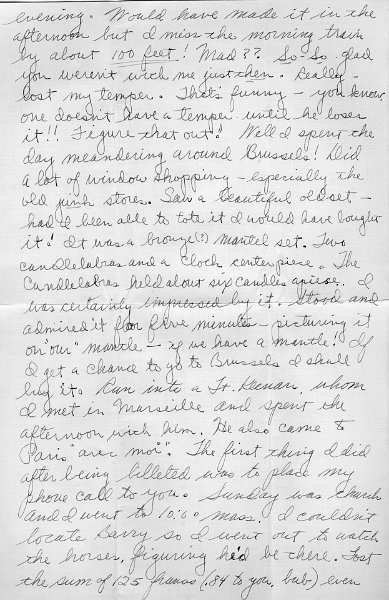 evening. Would have made it in the
afternoon but I miss the morning train
by about 100 feet! Mad?? So-So. glad
you weren't with me just then. Really-
lost my temper. That's funny - you know,
one doesn't have a temper until he loses
it!! Figure that out! Well I spent the
day meandering around Brussels! Did
a lot of window shopping - especially the
old junk stores. Saw a beautiful old set -
had I been able to tote it I would have bought
it! It was a bronze(?) mantel set. Two
candelabras and a clock center piece. The
candelabras held about six candles apiece. I
was certainly impressed by it. Stood and
admired it for five minutes - picturing it
on "our" mantle - if we have a mantle! If
I get a chance to go to Brussels I shall
buy it. Ran into a Lt. Keenan, whom
I met in Marseille and spent the
afternoon with him. He also came to
Paris "avec moi". The first thing I did
after being billeted was to place my
phone call to you. Sunday was church
and I went to 10:00 mass. I couldn't
locate Barry so I went out to watch
the horses, figuring he'd be there. Lost
the sum of 125 francs (.84 to you, bub) even